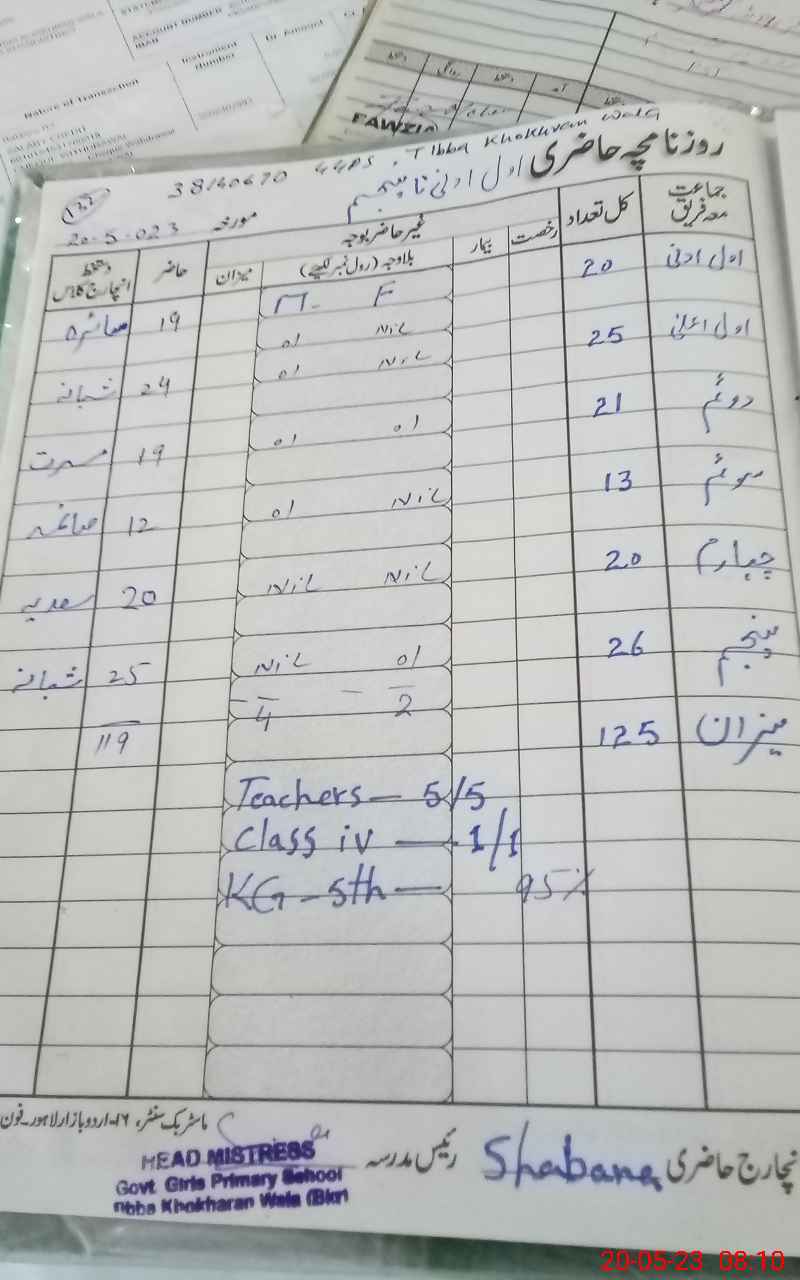 STATE
ACCOUNT NUMBER
IBAN
Instrument
Number
Dr. Amount
Nature of Transaction
FAWZIA
38140670 GGPS. Tibba Khokhran Wala
روزنامچہ حاضری اول ادنیٰ تا پنجم
20-5-023 مورخہ
جماعت معہ فریق کل تعداد رخصت بیمار غیر حاضر بوجہ حاضر دستخط انچارج کلاس
بلاوجہ (رول نمبر لکھیے) میزان
M. F
اول ادنیٰ 20 01 Nil 19 صائمہ
اول اعلیٰ 25 01 Nil 24 شبانہ
دوئم 21 01 01 19 مسرت
سوئم 13 01 Nil 12 صائمہ
چہارم 20 Nil Nil 20 سعدیہ
پنجم 26 Nil 01 25 شبانہ
میزان 125 4 2 119
Teachers — 5/5
Class iv — 1/1
KG - 5th — 95%
ماسٹر بک سنٹر، ۱۶- اردو بازار لاہور۔ فون
انچارج حاضری Shabana رئیس مدرسہ
HEAD MISTRESS
Govt Girls Primary School
Tibba Khokharan Wala (Bkr)
20-05-23 08:10